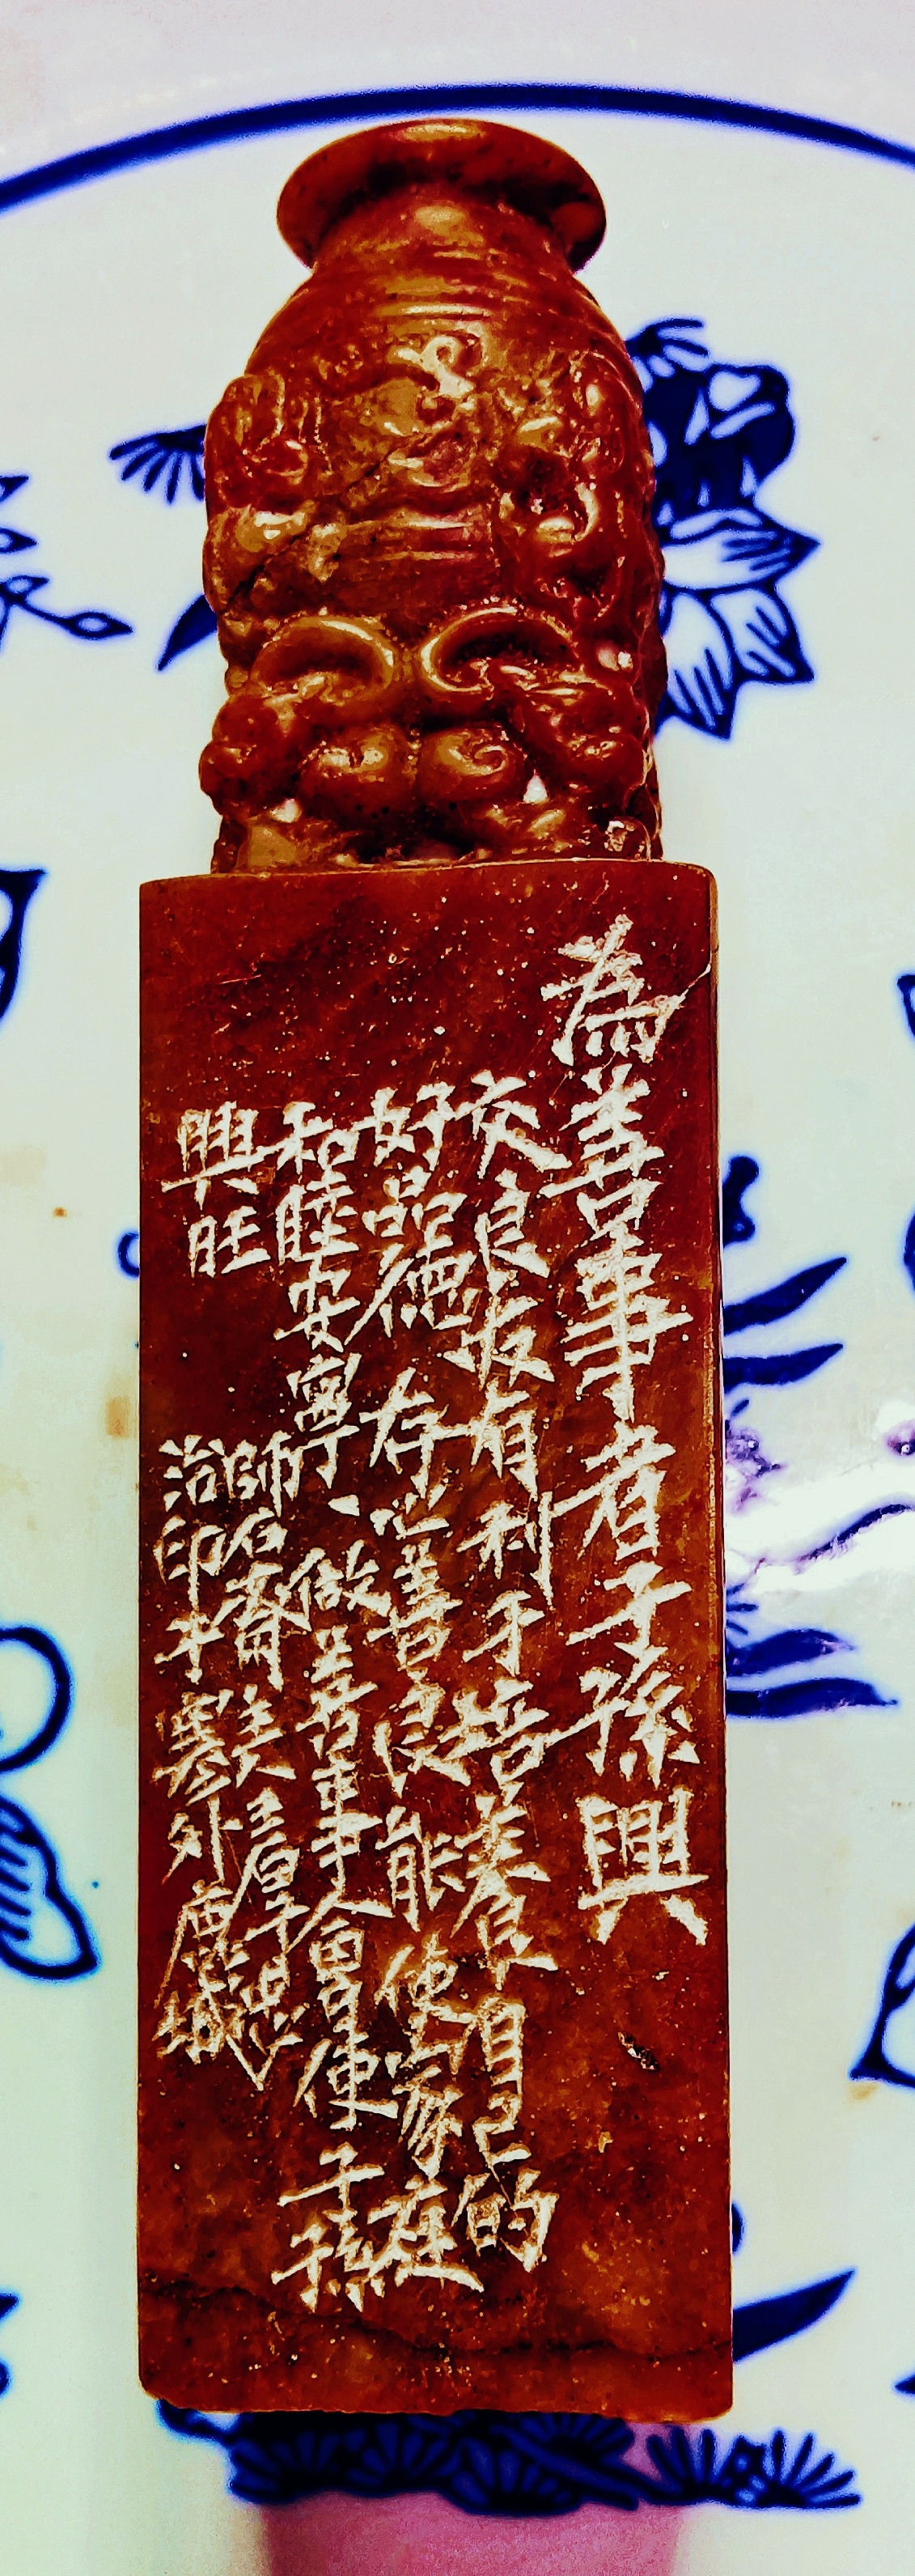 為善事者子孫興
交良友有利于培養良自己的
好品德存心善良能使家庭
和睦安寧、做善事人會使子孫
興旺
師石齋美意君子思
治印于塞外鹿城